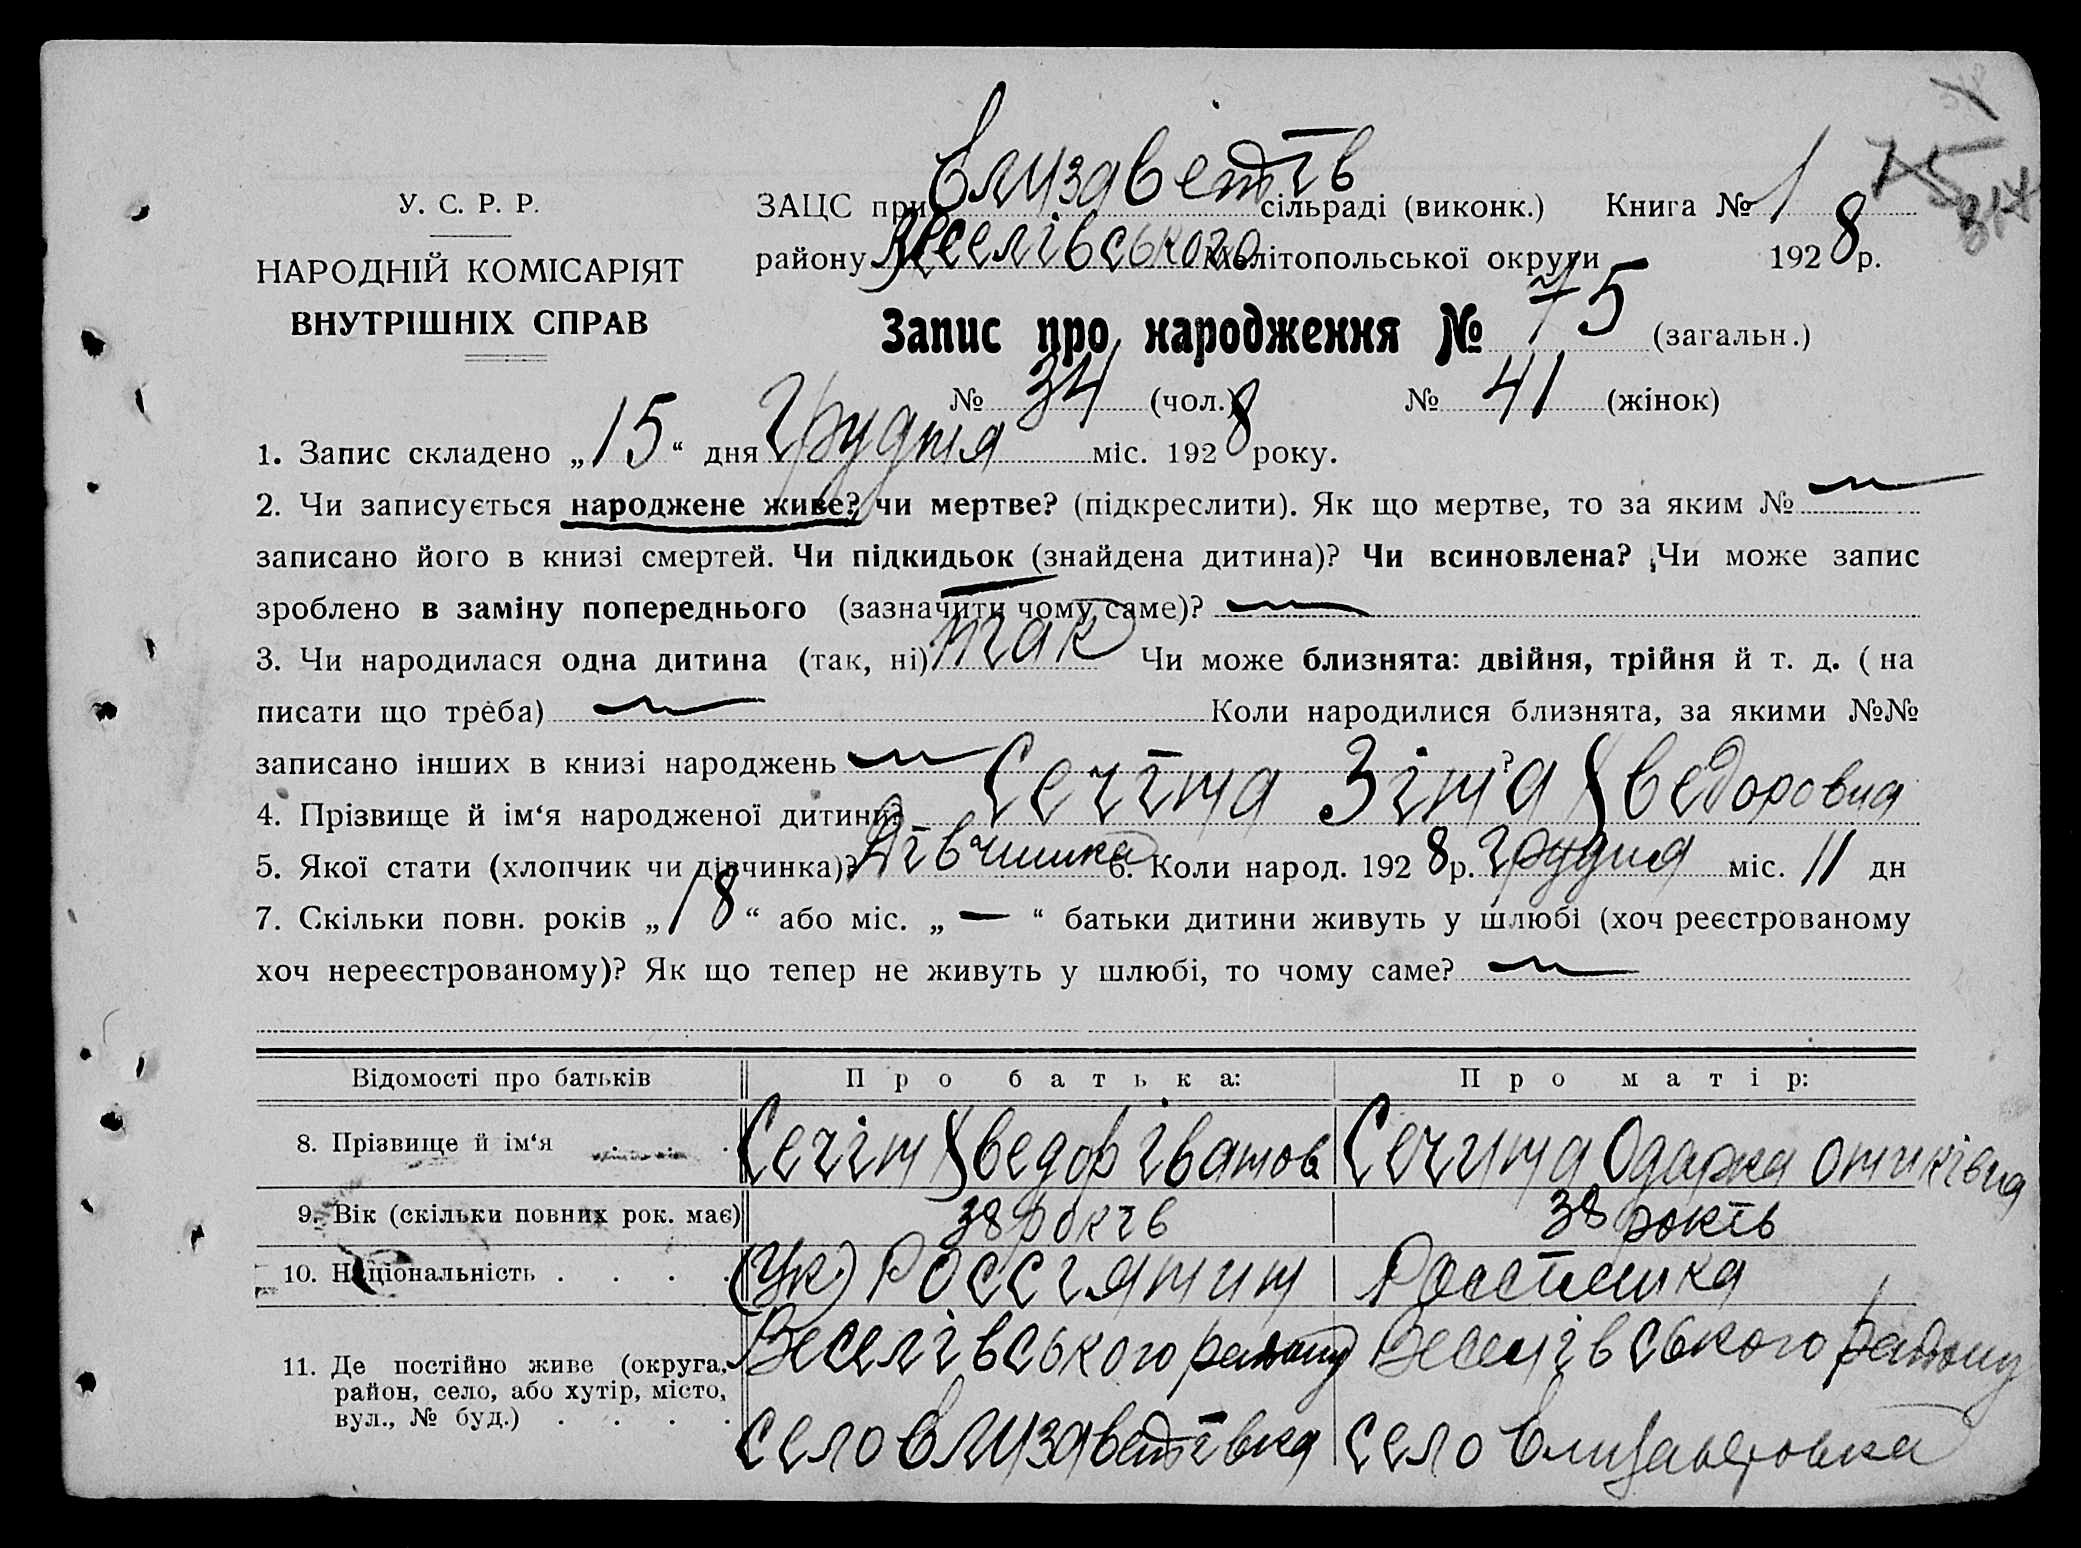 75
314
У. С. Р. Р.
НАРОДНІЙ КОМІСАРІЯТ
ВНУТРІШНІХ СПРАВ
ЗАЦС при Елизаветів сільраді (виконк.) Книга № 1
району Веселівського Мелітопольської округи 1928 р.
Запис про народження № 75 (загальн.)
№ 34 (чол.) № 41 (жінок)
1. Запис складено „15“ дня Грудня міс. 1928 року.
2. Чи записується народжене живе? чи мертве? (підкреслити). Як що мертве, то за яким №
записано його в книзі смертей. Чи підкидьок (знайдена дитина)? Чи всиновлена? Чи може запис
зроблено в заміну попереднього (зазначити чому саме)?
3. Чи народилася одна дитина (так, ні) так Чи може близнята: двійня, трійня й т. д. (на
писати що треба) Коли народилися близнята, за якими №№
записано інших в книзі народжень ?
4. Прізвище й ім‘я народженої дитини? Сечіна Зіна Хведоровна
5. Якої стати (хлопчик чи дівчинка)? Дівчинка 6. Коли народ. 1928 р. грудня міс. 11 дн
7. Скільки повн. років „18“ або міс. „—“ батьки дитини живуть у шлюбі (хоч реєстрованому
хоч нереєстрованому)? Як що тепер не живуть у шлюбі, то чому саме?
Відомості про батьків Про батька: Про матір:
8. Прізвище й ім‘я . . . Сечін Хведор Іванов Сечина Одарка
9. Вік (скільки повних рок. має) 38 років 38 років
10. Національність . . . . (Ук) Россіянин Россіянка
11. Де постійно живе (округа, Веселівського району Веселівського району
район, село, або хутір, місто,
вул., № буд.) . . . . село Елизаветівка село Елизаветовка